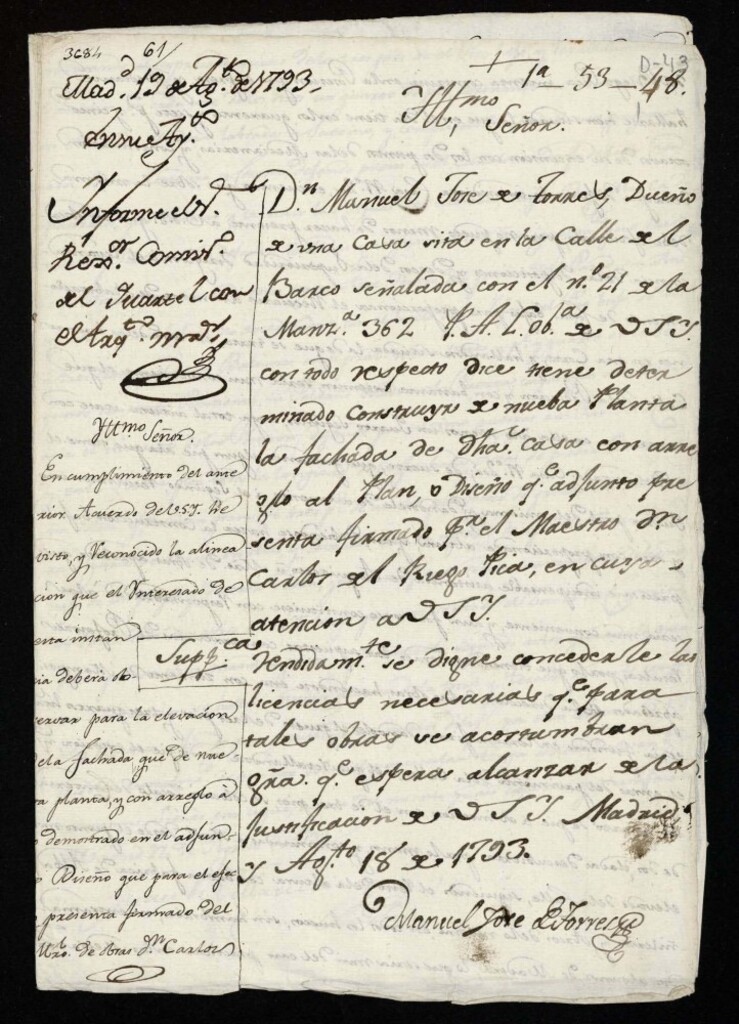 3684 61/
D-43
+ 1ª - 53 - 48.
Mad.d 19 de Ag.to de 1793.
En su Ay.to
Informe el S.or
Rex.or Comis.o
del Quartel con
el Arq.to mor
Yttmo Señor.
En cumplimiento del ante
rior Acuerdo de V.S.Y. he
visto, y Reconocido la alinea
cion que el Ynteresado de
esta instan
cia deberá ob-
servar para la elevacion
de la fachada que de nue-
va planta, y con arreglo à
lo demostrado en el adjun-
to Diseño que para el efec
to presenta firmado del
Mro. de Obras Dn. Carlos
Yllmo
Señor.
D.n Manuel Jose de Torres, Dueño
de una Casa sita en la Calle de el
Barco señalada con el n.o 21 de la
Manz.a 362 P. A. L. Ob.a de V S Y.
con todo respecto dice tiene deter
minado construyr de nueba Planta
la fachada de Dha. casa con arre
glo al Plan, o Diseño q.e adjunto pre
senta firmado p.r el Maestro D.n
Carlos de el Riego Pica, en cuya
atencion a V S Y.
Supp.ca
Rendidam.te se digne concederle las
licencias necesarias q.e para
tales obras se acostumbran
gra. q.e espera alcanzar de la
Justificacion de V S Y. Madrid
y Ag.to 18 de 1793.
Manuel Jose de Torres